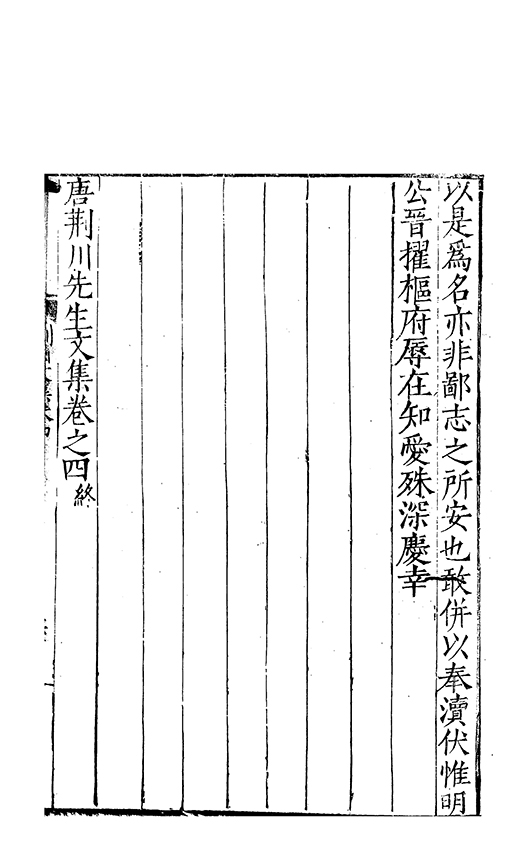 以是爲名亦非鄙志之所安也敢併以奉瀆伏惟明
公晉擢樞府辱在知愛殊深慶幸
唐荆川先生文集卷之四終